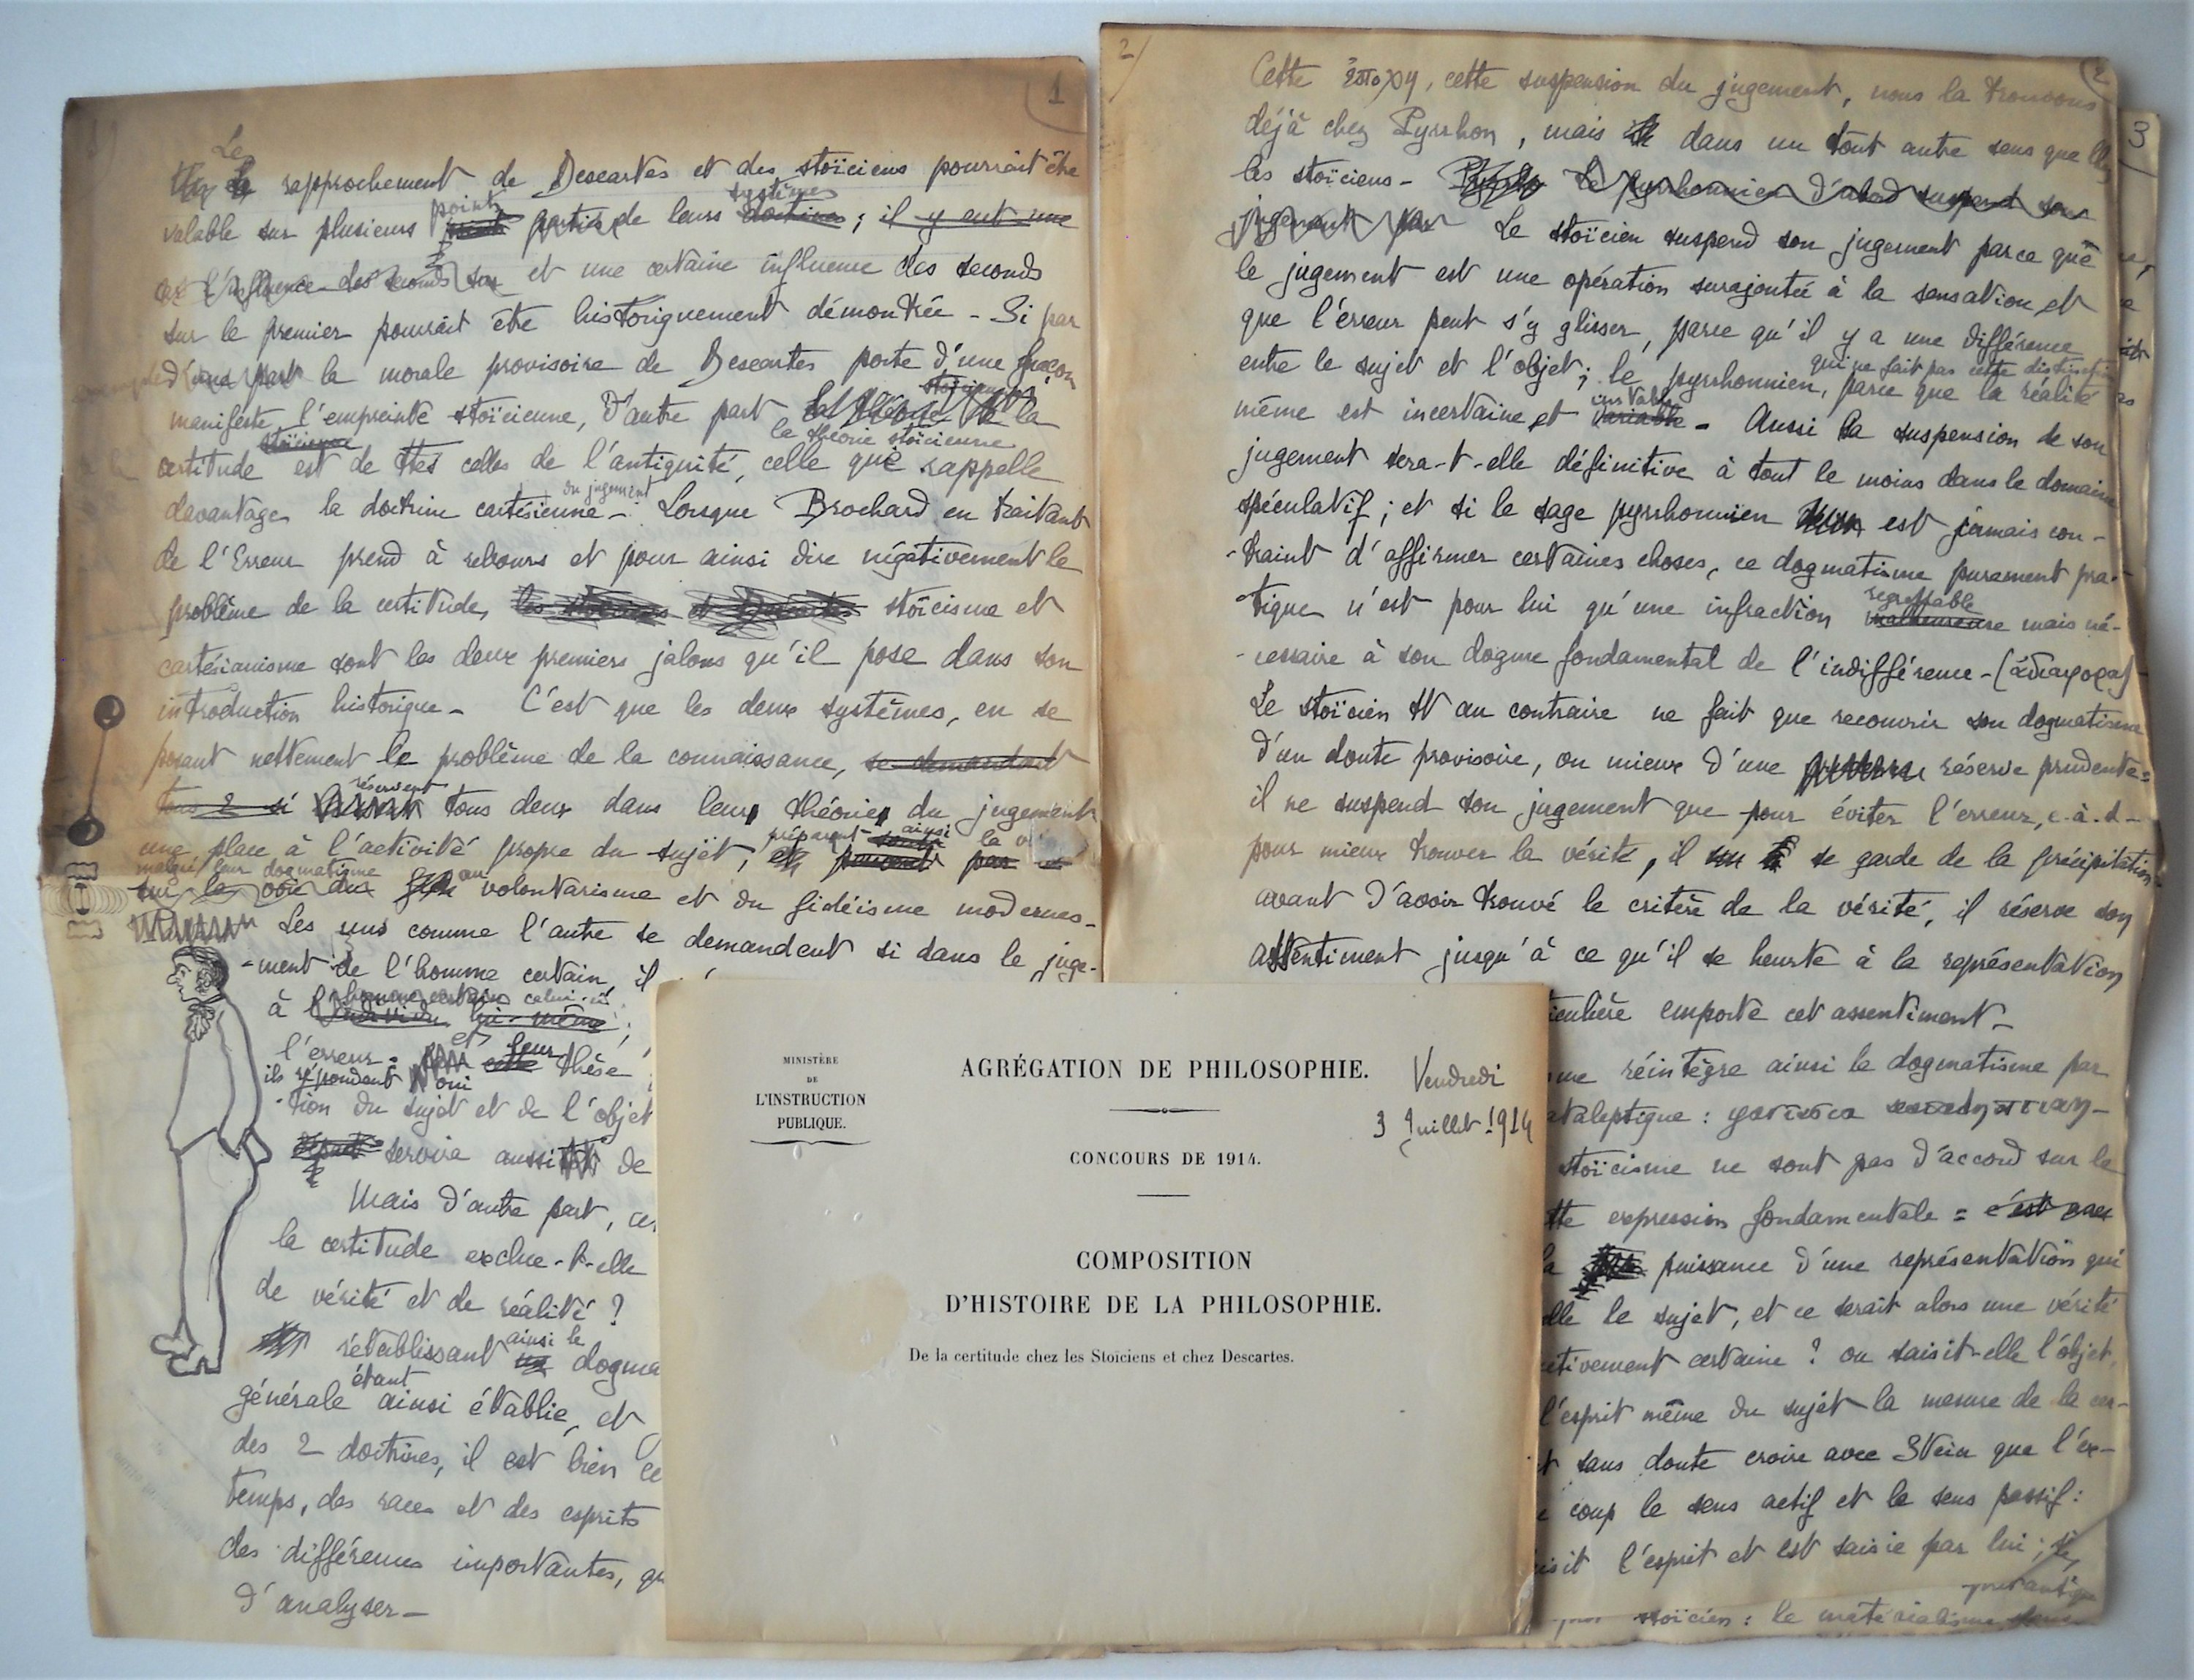 1
Le
rapprochement de Descartes et des stoïciens pourrait être
points systèmes
valable sur plusieurs parties de leurs doctrines ; il y eut une
et une certaine influence des seconds
sur le premier pourrait être historiquement démontrée - Si par
d'une part la morale provisoire de Descartes porte d'une façon
manifeste l'empreinte stoïcienne, d'autre part la
stoïcienne la théorie stoïcienne
certitude est de ttes celles de l'antiquité, celle qui rappelle
du jugement
davantage la doctrine cartésienne - Lorsque Brochard en traitant
de l'Erreur prend à rebours et pour ainsi dire négativement le
problème de la certitude, les stoïciens et Descartes stoïcisme et
cartésianisme sont les deux premiers jalons qu'il pose dans son
introduction historique - C'est que les deux systèmes, en se
posant nettement le problème de la connaissance, se demandant
réservent
tous 2 si tous deux dans leur théorie du jugement
une place à l'activité propre du sujet, préparent ainsi la
malgré leur dogmatisme
sur la voie au volontarisme et du fidéisme modernes -
Les uns comme l'autre se demandent si dans le juge-
-ment de l'homme certain, il
homme certain celui-ci
à l'individu lui-même ;
l'erreur : et leur thèse
ils répondent oui
-tion du sujet et de l'objet
servira aussi de
Mais d'autre part, ce
la certitude exclue-t-elle
de vérité et de réalité ?
rétablissant ainsi le dogma
étant
générale ainsi établie, et
des 2 doctrines, il est bien ce
temps, des races et des esprits
des différences importantes, qu
d'analyser -
2/
2
Cette ἐποχή, cette suspension du jugement, nous la trouvons
déjà chez Pyrrhon, mais dans un tout autre sens que chez
les stoïciens - Le pyrrhonnien d'abord suspend son
jugement par Le stoïcien suspend son jugement parce que
le jugement est une opération surajoutée à la sensation et
que l'erreur peut s'y glisser, parce qu'il y a une différence
entre le sujet et l'objet ; le pyrrhonnien, qui ne fait pas cette distinction, parce que la réalité
même est incertaine et instable variable - Aussi la suspension de son
jugement sera-t-elle définitive à tout le moins dans le domaine
spéculatif ; et si le sage pyrrhonnien est jamais con-
-traint d'affirmer certaines choses, ce dogmatisme purement pra-
regrettable
-tique n'est pour lui qu'une infraction malheureuse mais né-
-cessaire à son dogme fondamental de l'indifférence - (ἀδιαφορα) -
Le stoïcien au contraire ne fait que recouvrir son dogmatisme
d'un doute provisoire, ou mieux d'une réserve prudente :
il ne suspend son jugement que pour éviter l'erreur, c.à.d -
pour mieux trouver la vérité, il se garde de la précipitation
avant d'avoir trouvé le critère de la vérité, il réserve son
assentiment jusqu'à ce qu'il se heurte à la représentation
iculière emporte cet assentiment -
me réintègre ainsi le dogmatisme par
ataleptique : φαντασία καταληπτική -
stoïcisme ne sont pas d'accord sur le
tte expression fondamentale : c'est avec
la puissance d'une représentation qui
elle le sujet, et ce serait alors une vérité
ctivement certaine ? ou saisit-elle l'objet,
l'esprit même du sujet la mesure de la cer-
t sans doute croire avec Stein que l'ex-
coup le sens actif et le sens passif :
isit l'esprit et est saisie par lui ;
stoïcien : le matérialisme
3
MINISTÈRE
DE
L'INSTRUCTION
PUBLIQUE.
AGRÉGATION DE PHILOSOPHIE.
Vendredi
3 Juillet 1914
CONCOURS DE 1914.
COMPOSITION
D'HISTOIRE DE LA PHILOSOPHIE.
De la certitude chez les Stoïciens et chez Descartes.